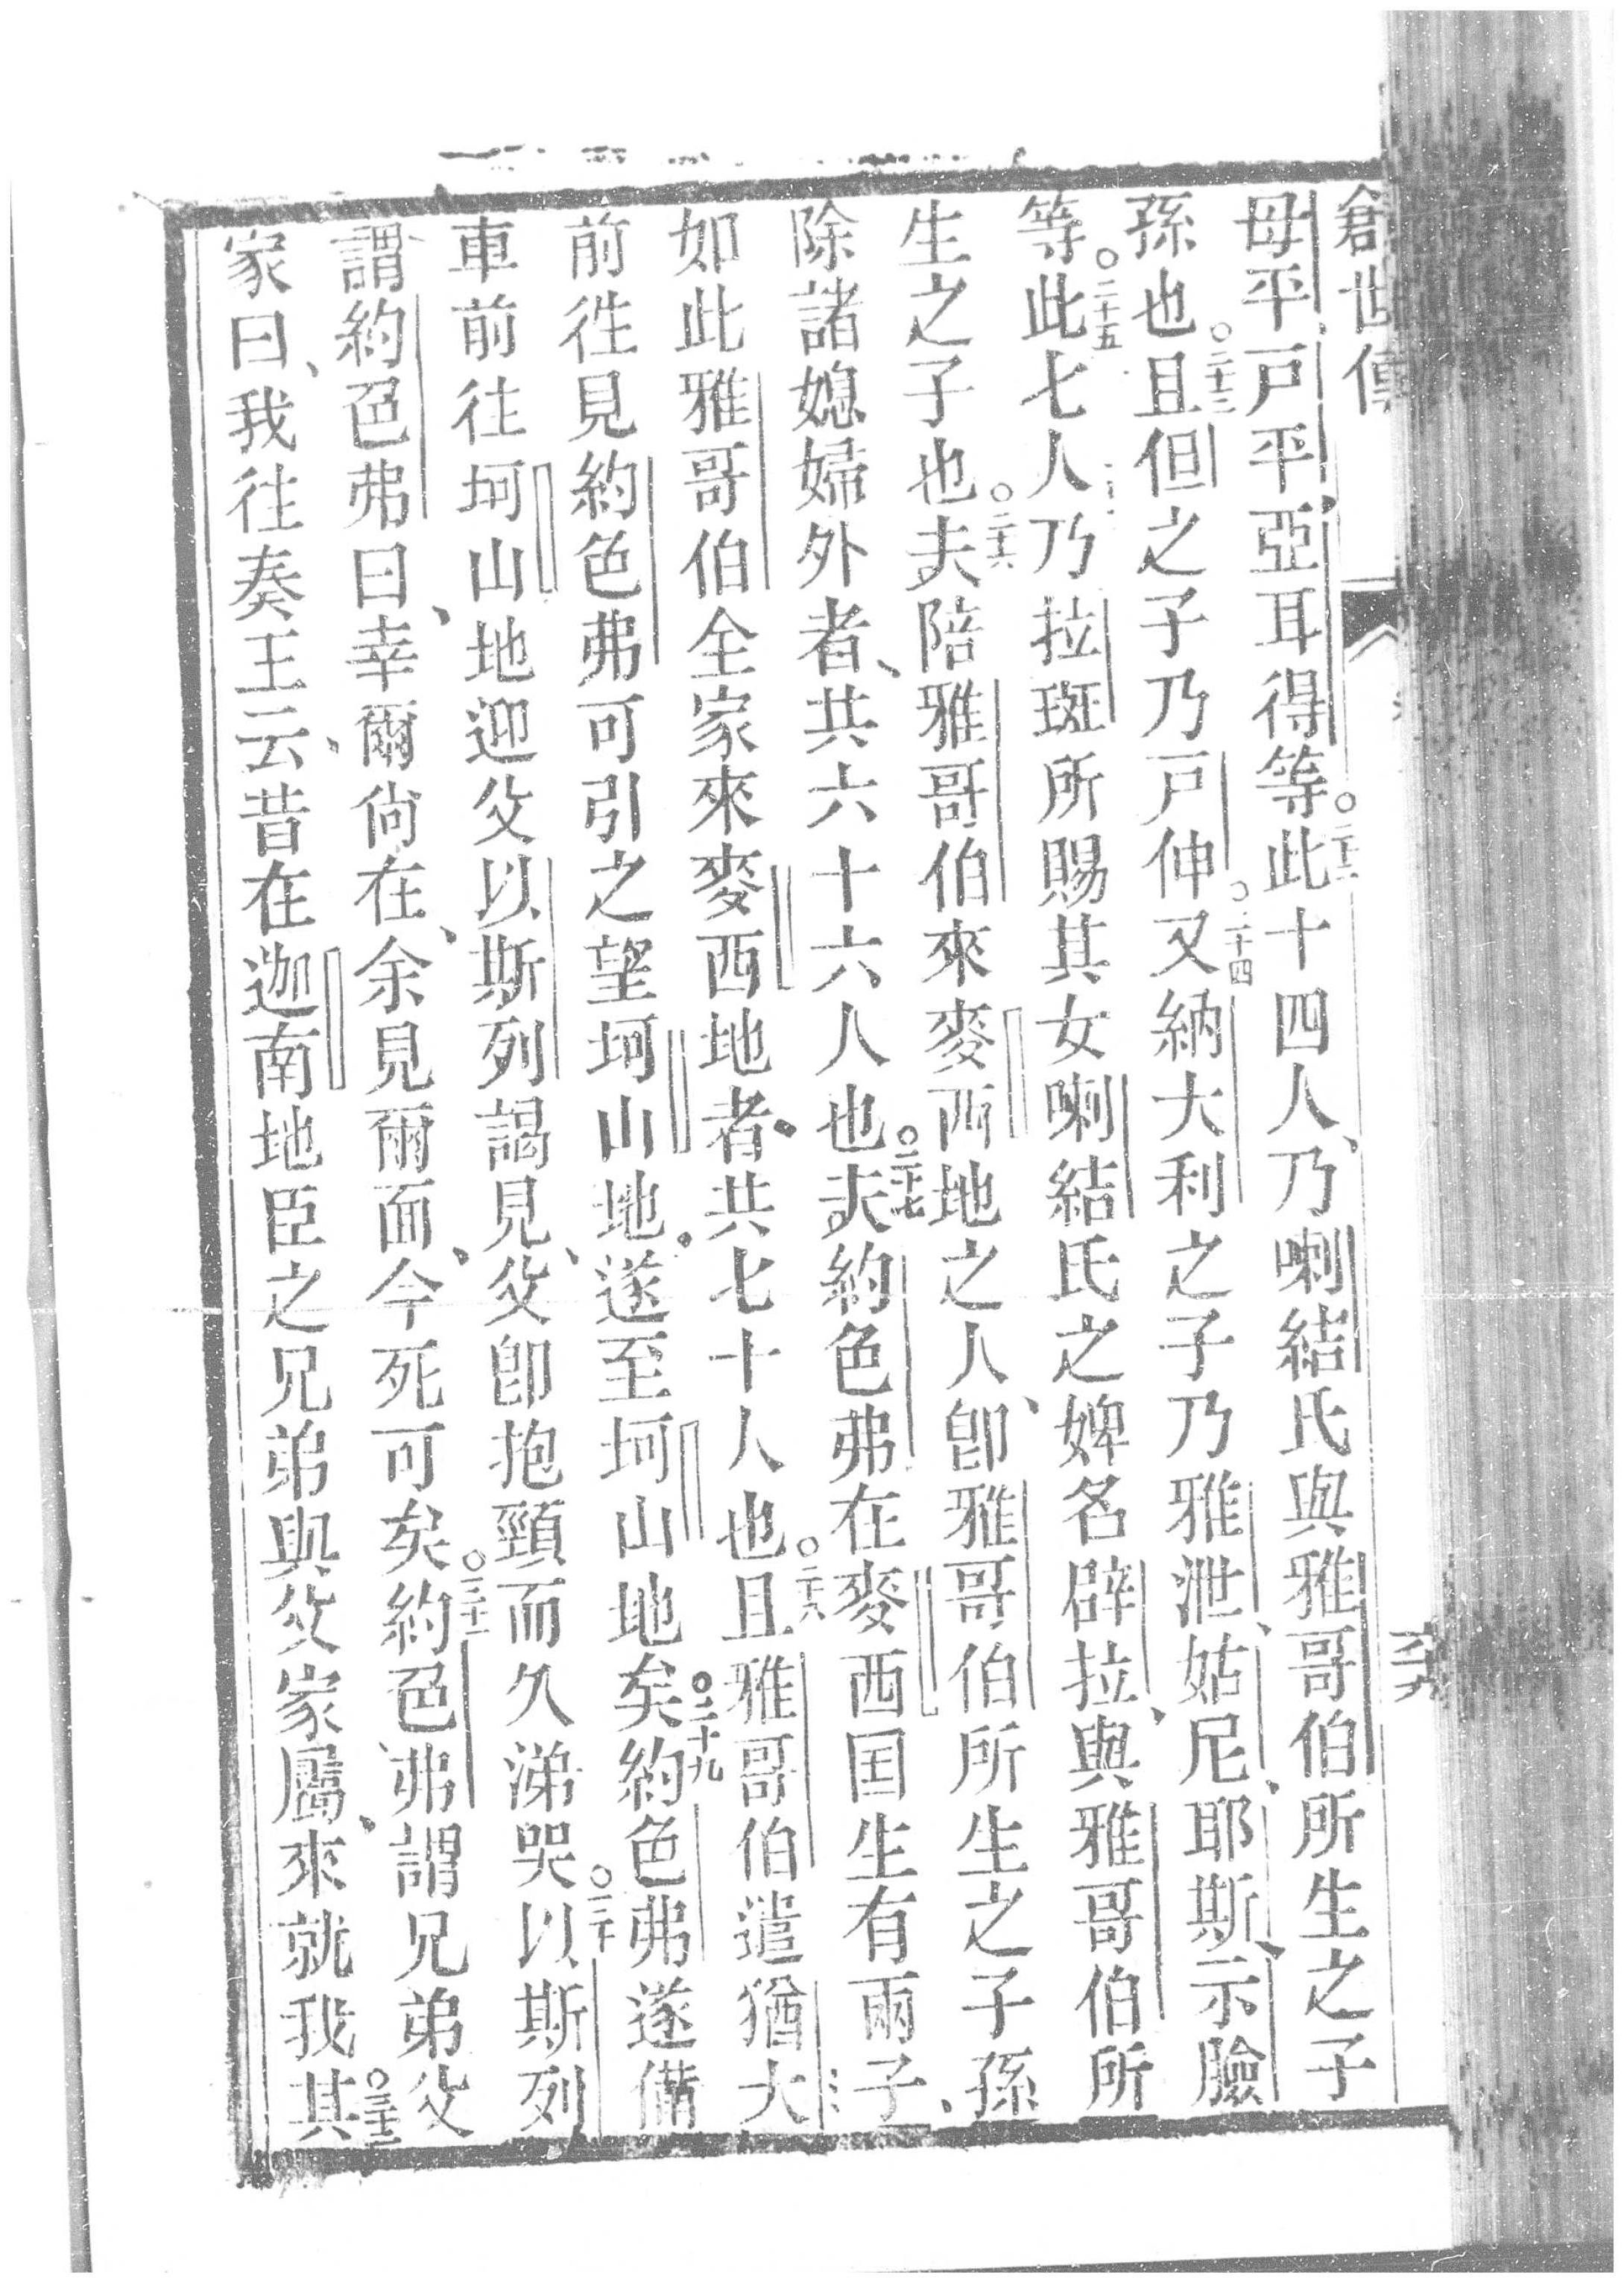 創世傳
母平、戸平、亞耳得等。○二十二此十四人、乃喇結氏與雅哥伯所生之子
孫也。○二十三且但之子乃戸伸。○二十四又納大利之子乃雅泄、姑尼、耶斯、示臉
等。○二十五此七人乃拉斑所賜其女喇結氏之婢名辟拉、與雅哥伯所
生之子也。○二十六夫陪雅哥伯來麥西地之人、卽雅哥伯所生之子孫、
除諸媳婦外者、共六十六人也。○二十七夫約色弗在麥西国生有兩子、
如此雅哥伯全家來麥西地者、共七十人也。○二十八且雅哥伯遣猶大
前徃見約色弗可引之望坷山地、遂至坷山地矣。○二十九約色弗遂備
車前往坷山地迎父以斯列謁見、父卽抱頸而久涕哭。○三十以斯列
謂約色弗曰、幸爾尙在、余見爾面、今死可矣。○三十一約色弗謂兄弟父
家曰、我往奏王云、昔在迦南地臣之兄弟與父家屬、來就我。○三十二其